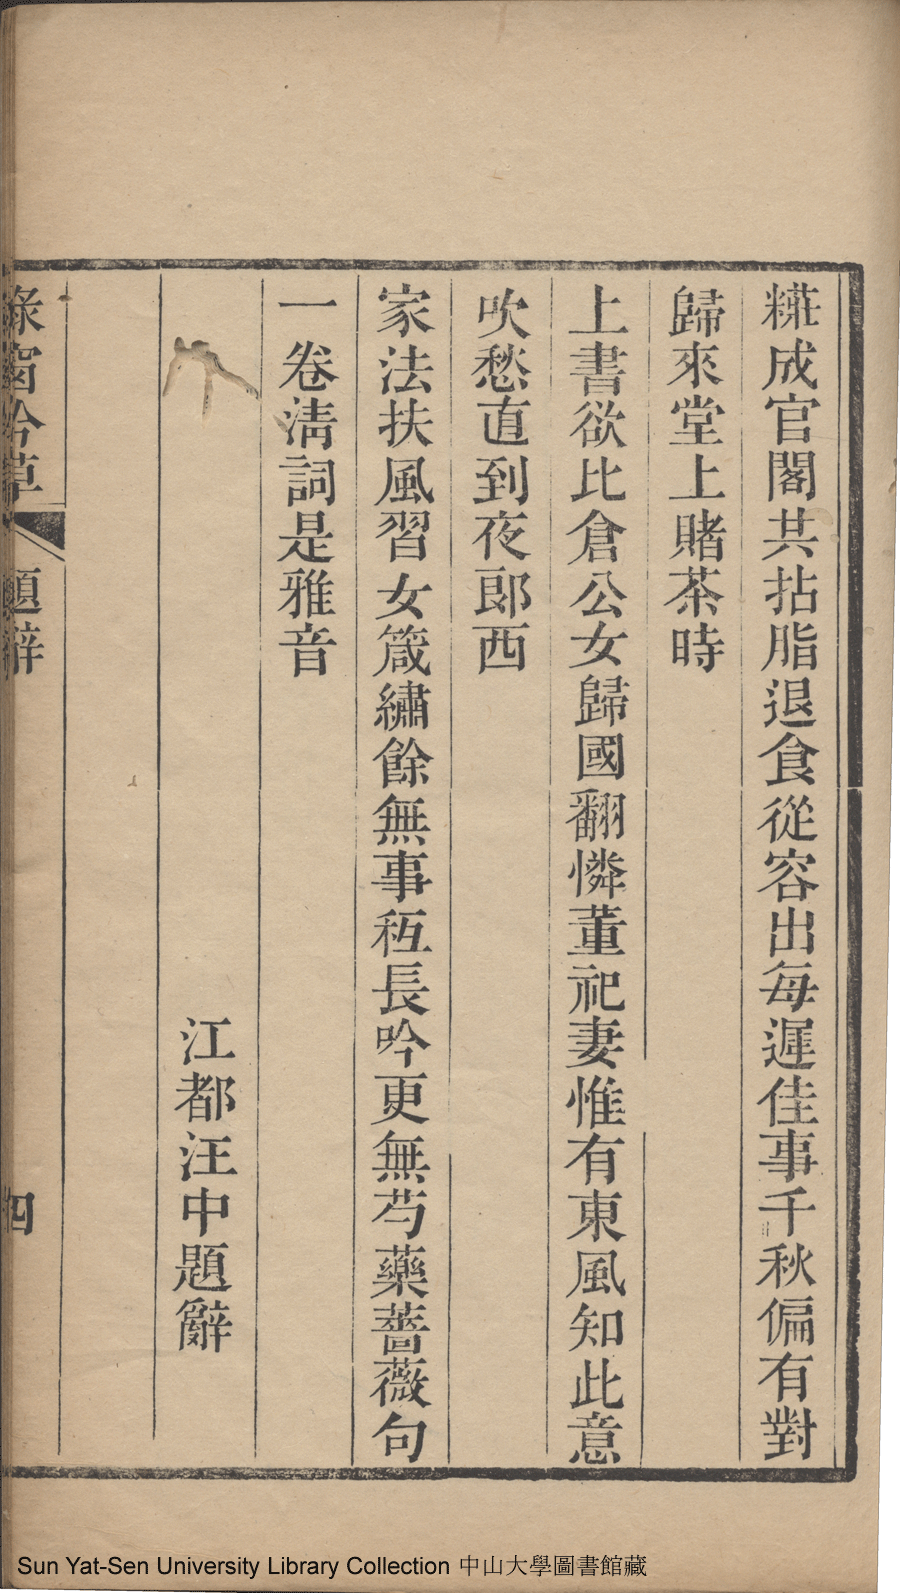 糚成官閣共拈脂退食從容出每遲佳事千秋偏有對
歸來堂上賭茶時
上書欲比倉公女歸國翻憐董祀妻惟有東風知此意
吹愁直到夜郎西
家法扶風習女箴繡餘無事秖長吟更無芍藥薔薇句
一卷淸詞是雅音
江都汪中題辭
綠窗吟草
題辭
四
Sun Yat-Sen University Library Collection 中山大學圖書館藏